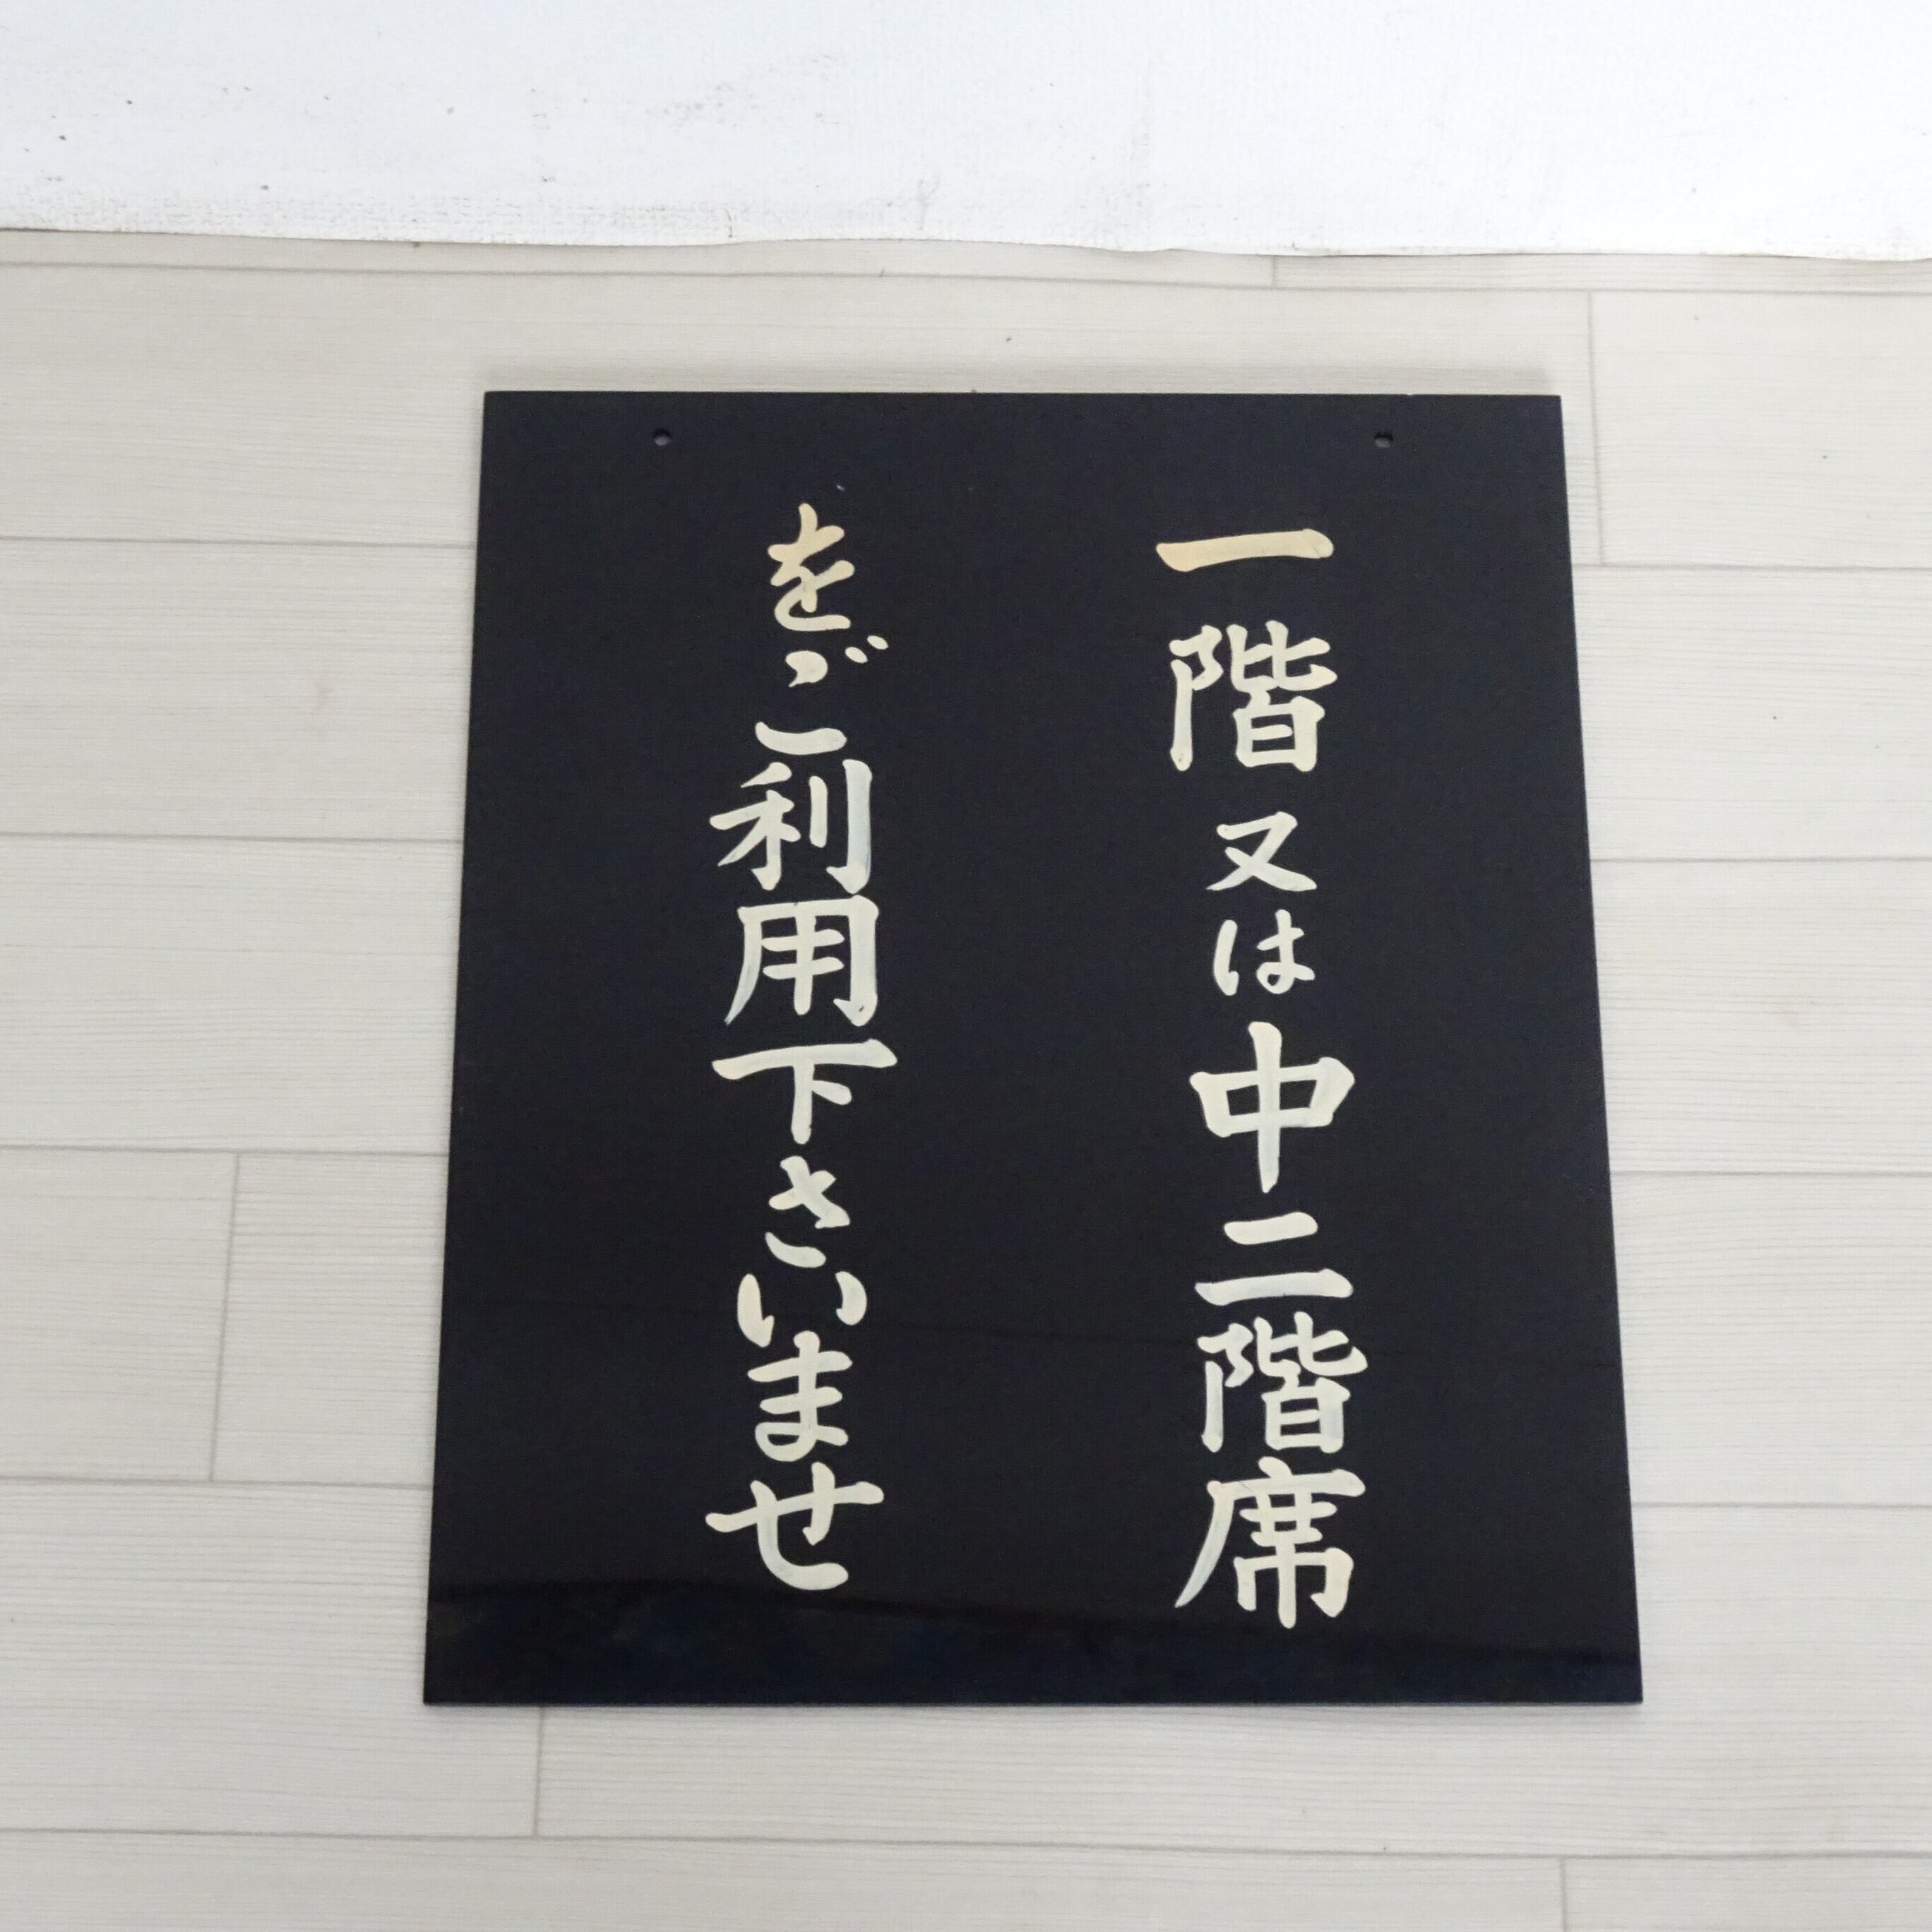 一階又は中二階席
をご利用下さいませ